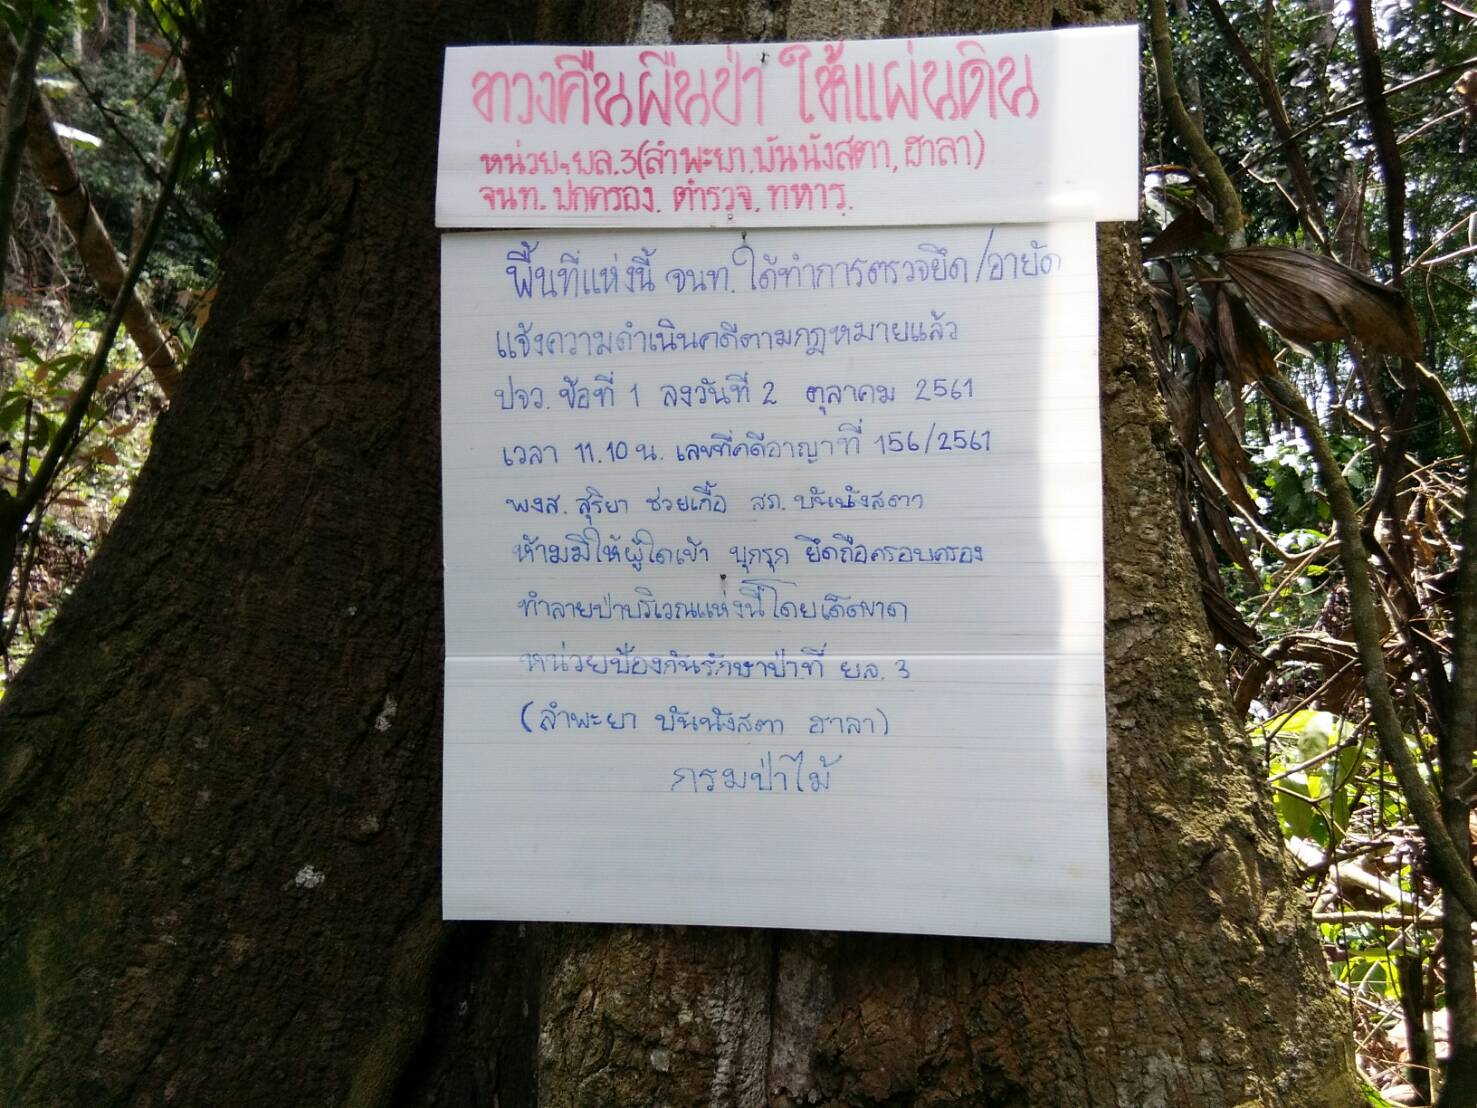 ทวงคืนผืนป่า ให้แผ่นดิน
หน่วยฯ ยล.3(ลำพะยา,บันนังสตา, ฮาลา)
จนท. ปกครอง. ตำรวจ. ทหาร.
พื้นที่แห่งนี้ จนท. ได้ทำการตรวจยึด/อายัด
แจ้งความดำเนินคดีตามกฎหมายแล้ว
ปจว. ข้อที่ 1 ลงวันที่ 2 ตุลาคม 2561
เวลา 11.10 น. เลขที่คดีอาญาที่ 156/2561
พงส. สุริยา ช่วยเกื้อ สภ. บันนังสตา
ห้ามมิให้ผู้ใดเข้า บุกรุก ยึดถือครอบครอง
ทำลายป่าบริเวณแห่งนี้โดยเด็ดขาด
หน่วยป้องกันรักษาป่าที่ ยล. 3
(ลำพะยา บันนังสตา ฮาลา)
กรมป่าไม้